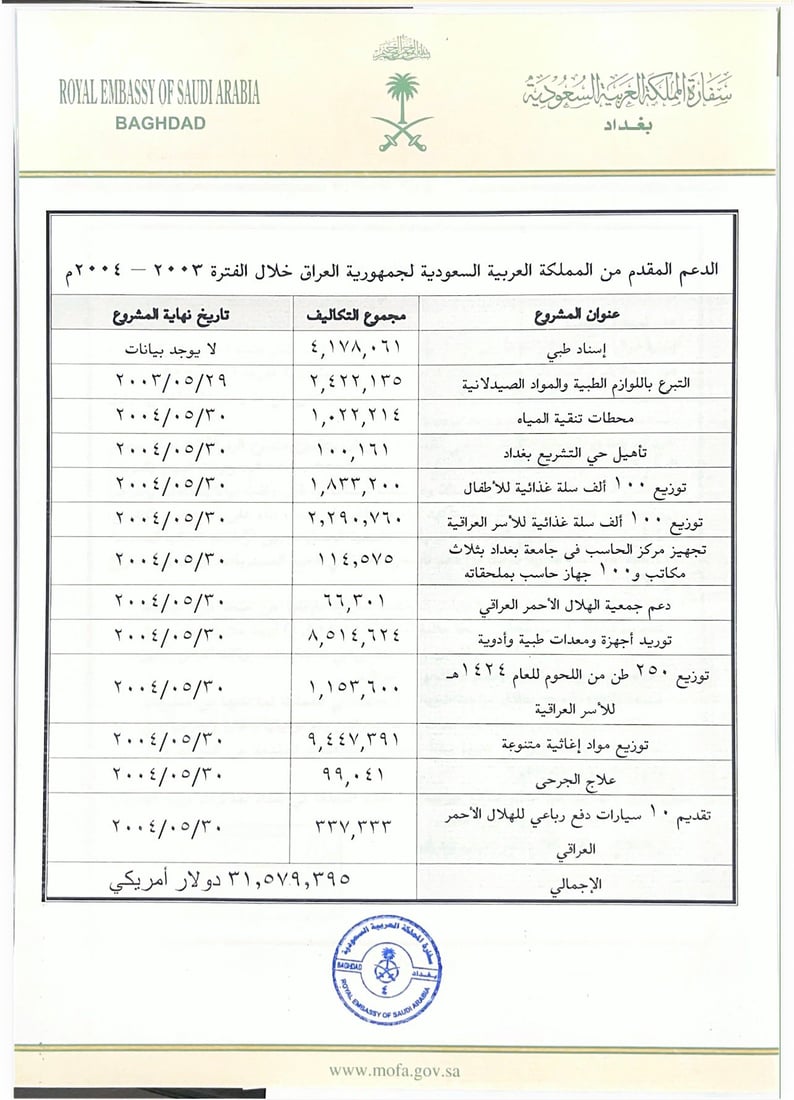 ROYAL EMBASSY OF SAUDI ARABIA
BAGHDAD
سفارة المملكة العربية السعودية
بغداد
الدعم المقدم من المملكة العربية السعودية لجمهورية العراق خلال الفترة ٢٠٠٣ – ٢٠٠٤م
عنوان المشروع مجموع التكاليف تاريخ نهاية المشروع
إسناد طبي ٤,١٧٨,٠٦١ لا يوجد بيانات
التبرع باللوازم الطبية والمواد الصيدلانية ٢,٤٢٢,١٣٥ ٢٠٠٣/٠٥/٢٩
محطات تنقية المياه ١,٠٢٢,٢١٤ ٢٠٠٤/٠٥/٣٠
تأهيل حي التشريع بغداد ١٠٠,١٦١ ٢٠٠٤/٠٥/٣٠
توزيع ١٠٠ ألف سلة غذائية للأطفال ١,٨٣٣,٢٠٠ ٢٠٠٤/٠٥/٣٠
توزيع ١٠٠ ألف سلة غذائية للأسر العراقية ٢,٢٩٠,٧٦٠ ٢٠٠٤/٠٥/٣٠
تجهيز مركز الحاسب في جامعة بغداد بثلاث
مكاتب و١٠٠ جهاز حاسب بملحقاته ١١٤,٥٧٥ ٢٠٠٤/٠٥/٣٠
دعم جمعية الهلال الأحمر العراقي ٦٦,٣٠١ ٢٠٠٤/٠٥/٣٠
توريد أجهزة ومعدات طبية وأدوية ٨,٥١٤,٦٢٤ ٢٠٠٤/٠٥/٣٠
توزيع ٢٥٠ طن من اللحوم للعام ١٤٢٤هـ
للأسر العراقية ١,١٥٣,٦٠٠ ٢٠٠٤/٠٥/٣٠
توزيع مواد إغاثية متنوعة ٩,٤٤٧,٣٩١ ٢٠٠٤/٠٥/٣٠
علاج الجرحى ٩٩,٠٤١ ٢٠٠٤/٠٥/٣٠
تقديم ١٠ سيارات دفع رباعي للهلال الأحمر
العراقي ٣٣٧,٣٣٣ ٢٠٠٤/٠٥/٣٠
الإجمالي ٣١,٥٧٩,٣٩٥ دولار أمريكي
سفارة المملكة العربية السعودية
BAGHDAD بغداد
٤
ROYAL EMBASSY OF SAUDI ARABIA
www.mofa.gov.sa